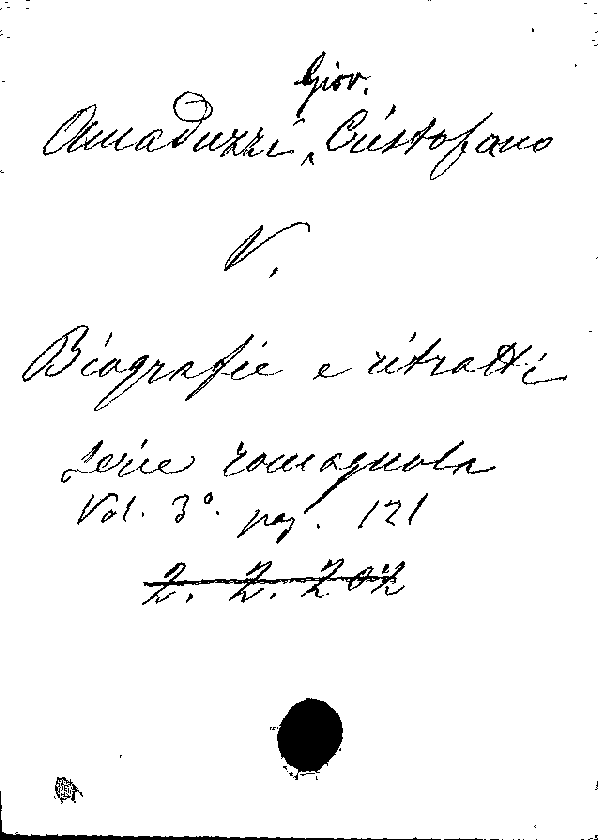 Amaduzzi, Giov. Cristofano
V.
Biografie e ritratti
serie romagnola
Vol. 3º. pag. 121
2. 2. 202